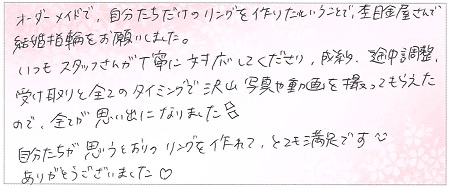 オーダーメイドで、自分たちだけのリングを作りたいということで、杢目金屋さんで
結婚指輪をお願いしました。
いつもスタッフさんが丁寧に対応してくださり、成約、途中調整、
受け取りと全てのタイミングで沢山写真や動画を撮ってもらえた
ので、全てが思い出になりました
自分たちが思うとおりのリングを作れて、とても満足です
ありがとうございました♡